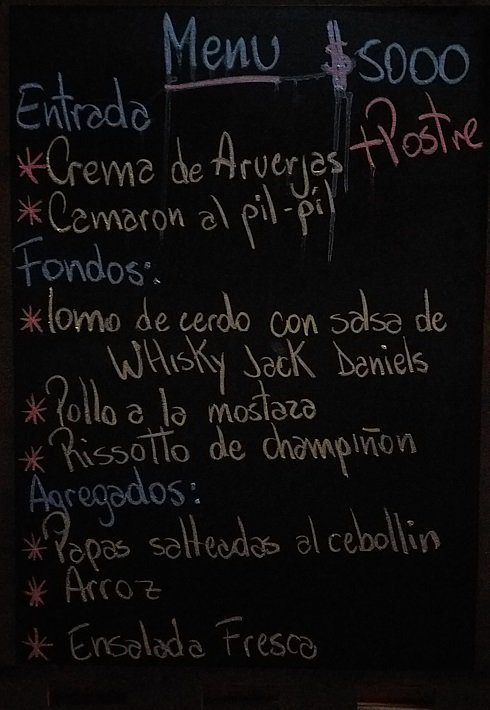 Menu $5000
+Postre
Entrada
* Crema de Arverjas
* Camaron al pil-pil
Fondos:
* lomo de cerdo con salsa de
WHisKy JacK Daniels
* Pollo a la mostaza
* Rissotto de champiñon
Agregados:
* Papas salteadas al cebollin
* Arroz
* Ensalada Fresca